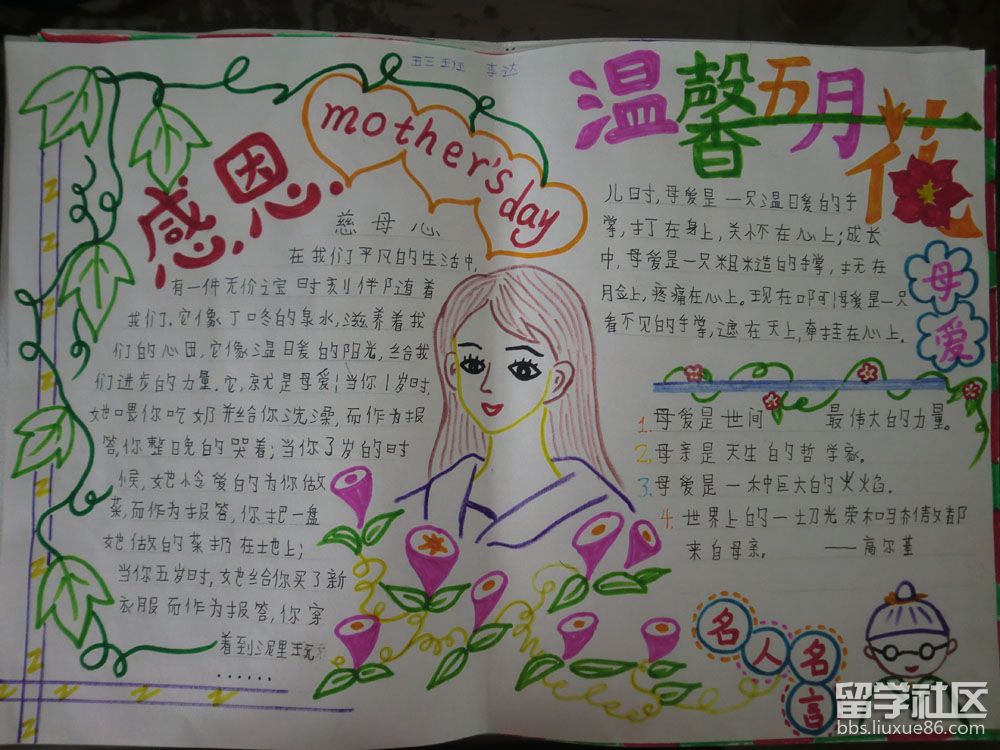 五三班 李达
感恩
mother's day
慈母心
在我们平凡的生活中,
有一件无价之宝时刻伴随着
我们.它像丁咚的泉水,滋养着我
们的心田,它像温暖的阳光,给我
们进步的力量.它,就是母爱!当你1岁时,
她喂你吃奶并给你洗澡,而作为报
答,你整晚的哭着;当你了岁的时
候,她怜爱的为你做
菜,而作为报答,你把一盘
她做的菜扔在地上;
当你五岁时,她给你买了新
衣服而作为报答,你穿
着到泥里玩
......
温馨五月花
儿时,母爱是一只温暖的手
掌,打在身上,关怀在心上;成长
中,母爱是一只粗糙的手掌,打在
脸上,疼痛在心上。现在啊!母爱是一只
看不见的手掌,遮在天上,牵挂在心上。
母爱
1.母爱是世间 最伟大的力量。
2.母亲是天生的哲学家。
3.母爱是一种巨大的火焰。
4.世界上的一切光荣和骄傲都
来自母亲。 ——高尔基
名人名言
留学社区
bbs.liuxue86.com